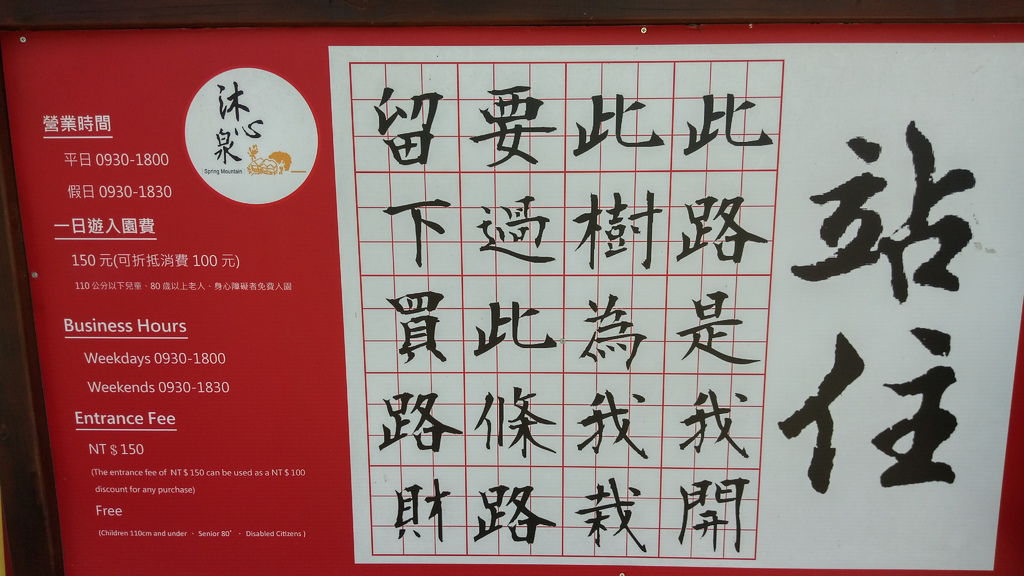 沐心泉
Spring Mountain
營業時間
平日 0930-1800
假日 0930-1830
一日遊入園費
150 元(可折抵消費 100 元)
110 公分以下兒童、80 歲以上老人、身心障礙者免費入園
Business Hours
Weekdays 0930-1800
Weekends 0930-1830
Entrance Fee
NT $ 150
(The entrance fee of NT $ 150 can be used as a NT $ 100
discount for any purchase)
Free
(Children 110cm and under ・ Senior 80+ ・ Disabled Citizens )
站住
此路是我開
此樹為我栽
要過此條路
留下買路財